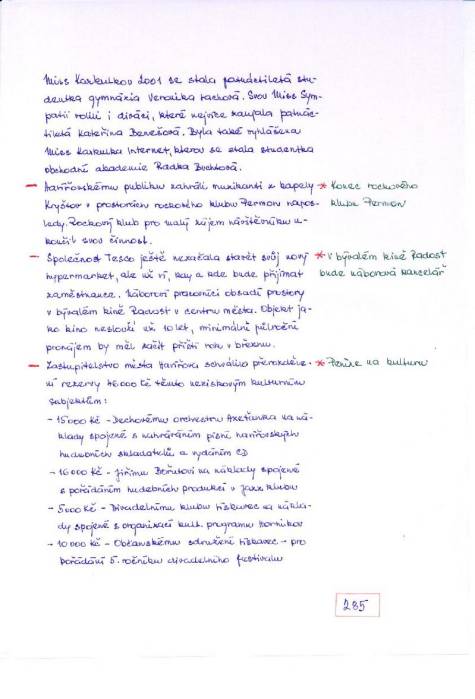 Miss Karkulkou 2001 se stala patnáctiletá stu-
dentka gymnázia Veronika Rachová. Svou Miss Sym-
patií volili i diváci, které nejvíce zaujala patnác-
tiletá Kateřina Benešová. Byla také vyhlášena
Miss Karkulka Internet, kterou se stala studentka
obchodní akademie Radka Buchtová.
– Havířovskému publiku zahráli muzikanti z kapely
Kryštov v prostorách rockového klubu Permon napos-
ledy. Rockový klub pro malý zájem návštěvníků u-
končil svou činnost.
* Konec rockového
klubu Permon
– Společnost Tesco ještě nezačala stavět svůj nový
hypermarket, ale už ví, kdy a kde bude přijímat
zaměstnance. Náboroví pracovníci obsadí prostory
v bývalém kině Radost v centru města. Objekt ja-
ko kino neslouží už 10 let, minimální půlroční
pronájem by měl začít příští rok v březnu.
* V bývalém kině Radost
bude náborová kancelář
– Zastupitelstvo města Havířova schválilo přerozděle-
ní rezervy 46000 Kč těmto neziskovým kulturním
subjektům:
* Peníze na kulturu
- 15000 Kč - Dechovému orchestru Axeťanka na ná-
klady spojené s nahráváním písní havířovských
hudebních skladatelů a vydáním CD
- 16000 Kč - Jiřímu na náklady spojené
s pořádáním hudebních produkcí v jazz klubu
- 5000 Kč - Divadelnímu klubu na nákla-
dy spojené s organizací kult. programu Horníkov
- 10000 Kč - Občanskému sdružení - pro
pořádání 5. ročníku divadelního festivalu
285